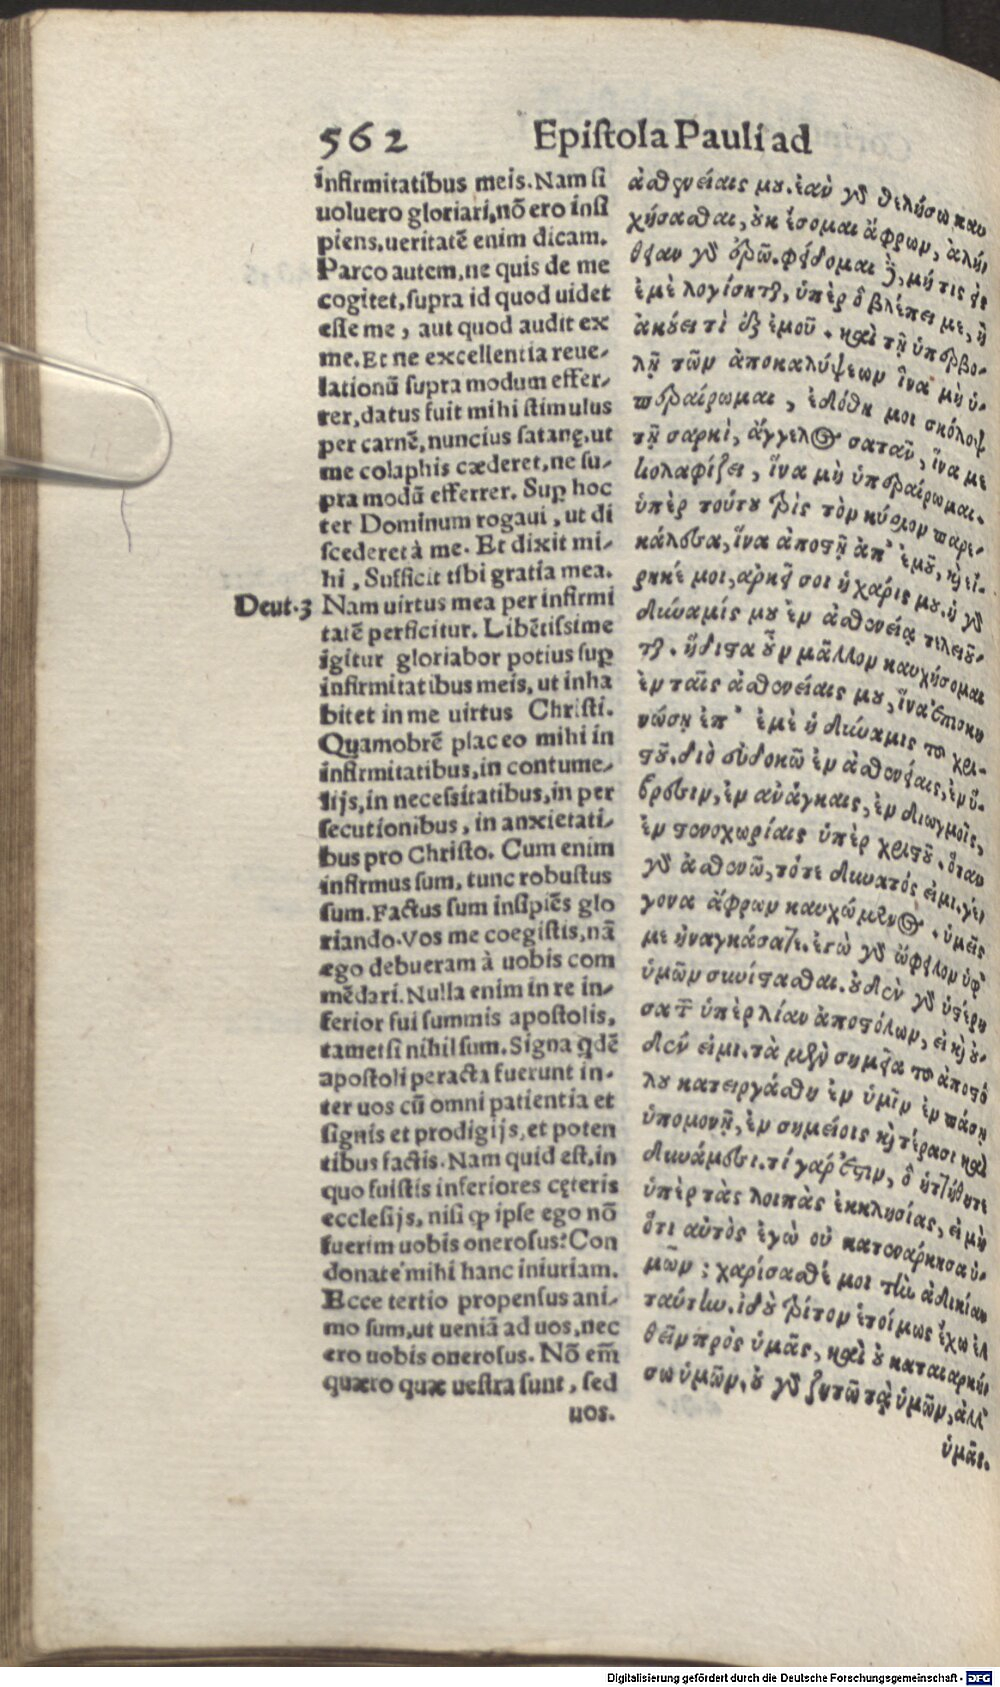 562
Epistola Pauli ad
infirmitatibus meis. Nam si
uoluero gloriari, nõ ero insi
piens. ueritatẽ enim dicam.
Parco autem, ne quis de me
cogitet, supra id quod uidet
esse me, aut quod audit ex
me. Et ne excellentia reue-
lationũ supra modum effer-
rer, datus fuit mihi stimulus
per carnẽ, nuncius satanę, ut
me colaphis cæderet, ne su-
pra modũ efferrer. Suꝑ hoc
ter Dominum rogaui, ut di
scederet à me. Et dixit mi-
hi, Sufficit tibi gratia mea.
Deut. 3
Nam uirtus mea per infirmi
tatẽ perficitur. Libẽtissime
igitur gloriabor potius suꝑ
infirmitatibus meis, ut inha
bitet in me uirtus Christi.
Quamobrẽ placeo mihi in
infirmitatibus, in contume-
lijs, in necessitatibus, in per
secutionibus, in anxietati-
bus pro Christo. Cum enim
infirmus sum, tunc robustus
sum. Factus sum insipiẽs glo
riando. Vos me coegistis, nã
ego debueram à uobis com
mẽdari. Nulla enim in re in-
ferior fui summis apostolis,
tametsi nihil sum. Signa qdẽ
apostoli peracta fuerunt in-
ter uos cũ omni patientia et
signis et prodigijs, et poten
tibus factis. Nam quid est, in
quo fuistis inferiores cęteris
ecclesijs, nisi ꝙ ipse ego nõ
fuerim uobis onerosus? Con
donate mihi hanc iniuriam.
Ecce tertio propensus ani-
mo sum, ut ueniã ad uos, nec
ero uobis onerosus. Nõ em̃
quæro quæ uestra sunt, sed
uos.
ἀσθενείαις μου. ἐὰν γὰρ θελήσω καυ
χήσασθαι, οὐκ ἔσομαι ἄφρων, ἀλή-
θειαν γὰρ ἐρῶ. φείδομαι δὲ, μή τις εἰς
ἐμὲ λογίσηται, ὑπὲρ ὃ βλέπει με, ἢ
ἀκούει τὶ ἐξ ἐμοῦ. καὶ τῇ ὑπερβο-
λῇ τῶν ἀποκαλύψεων ἵνα μὴ ὑ-
περαίρωμαι, ἐδόθη μοι σκόλοψ
τῇ σαρκὶ, ἄγγελος σατᾶν, ἵνα με
κολαφίζει, ἵνα μὴ ὑπεραίρωμαι.
ὑπὲρ τούτου τρὶς τὸν κύριον παρε-
κάλεσα, ἵνα ἀποστῇ ἀπ' ἐμοῦ, καὶ εἴ-
ρηκέ μοι, ἀρκεῖ σοι ἡ χάρις μου. ἡ γὰρ
δύναμίς μου ἐν ἀσθενείᾳ τελειοῦ-
ται. ἥδιστα οὖν μᾶλλον καυχήσομαι
ἐν ταῖς ἀσθενείαις μου, ἵνα ἐπισκη
νώσῃ ἐπ' ἐμὲ ἡ δύναμις τοῦ χρι-
στοῦ. διὸ εὐδοκῶ ἐν ἀσθενείαις, ἐν ὕ-
βρεσιν, ἐν ἀνάγκαις, ἐν διωγμοῖς,
ἐν στενοχωρίαις ὑπὲρ χριστοῦ. ὅταν
γὰρ ἀσθενῶ, τότε δυνατός εἰμι. γέ
γονα ἄφρων καυχώμενος. ὑμεῖς
με ἠναγκάσατε. ἐγὼ γὰρ ὤφειλον ὑφ'
ὑμῶν συνίστασθαι. οὐδὲν γὰρ ὑστέρη
σα τῶν ὑπὲρ λίαν ἀποστόλων, εἰ καὶ οὐ-
δέν εἰμι. τὰ μὲν σημεῖα τοῦ ἀποστό
λου κατειργάσθη ἐν ὑμῖν ἐν πάσῃ
ὑπομονῇ, ἐν σημείοις καὶ τέρασι καὶ
δυνάμεσι. τί γάρ ἐστιν, ὃ ἡττήθητε
ὑπὲρ τὰς λοιπὰς ἐκκλησίας, εἰ μὴ
ὅτι αὐτὸς ἐγὼ οὐ κατενάρκησα ὑ-
μῶν; χαρίσασθέ μοι τὴν ἀδικίαν
ταύτην. ἰδοὺ τρίτον ἑτοίμως ἔχω ἐλ
θεῖν πρὸς ὑμᾶς, καὶ οὐ καταναρκή
σω ὑμῶν. οὐ γὰρ ζητῶ τὰ ὑμῶν, ἀλλ'
ὑμᾶς.
Digitalisierung gefördert durch die Deutsche Forschungsgemeinschaft - DFG